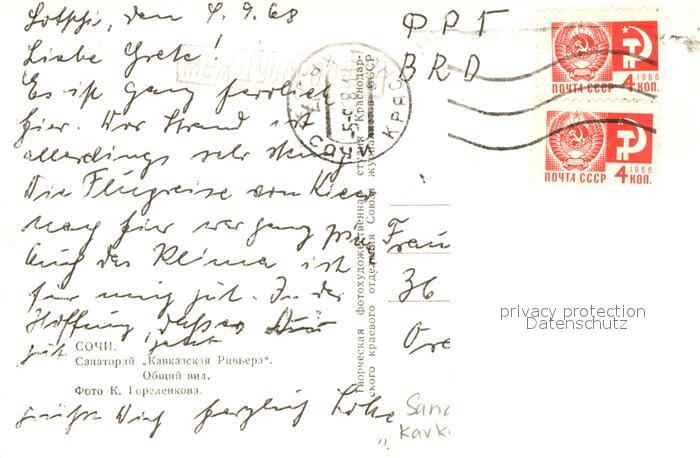 Sotschi, den 4.9.68
Liebe Grete!
Es ist ganz herrlich
hier. Der Strand ist
allerdings sehr steinig
Die Flugreise von Kiew
nach hier war ganz prima
Auch das Klima ist
für mich gut. In der
Hoffnung, dass es Dir
gut geht
grüßt Dich herzlich
СОЧИ.
Санаторий „Кавказская Ривьера".
Общий вид.
Фото К. Гореленкова.
Творческая фотохудожественная студия Краснодар-
ского краевого отделения Союза журналистов СССР
МЕЖДУНАРОДНОЕ
СОЧИ
КРАСН
ФРГ
BRD
Frau
36
San
Kavk
ПОЧТА СССР
1966
4 КОП.
ПОЧТА СССР
1966
4 КОП.
privacy protection
Datenschutz